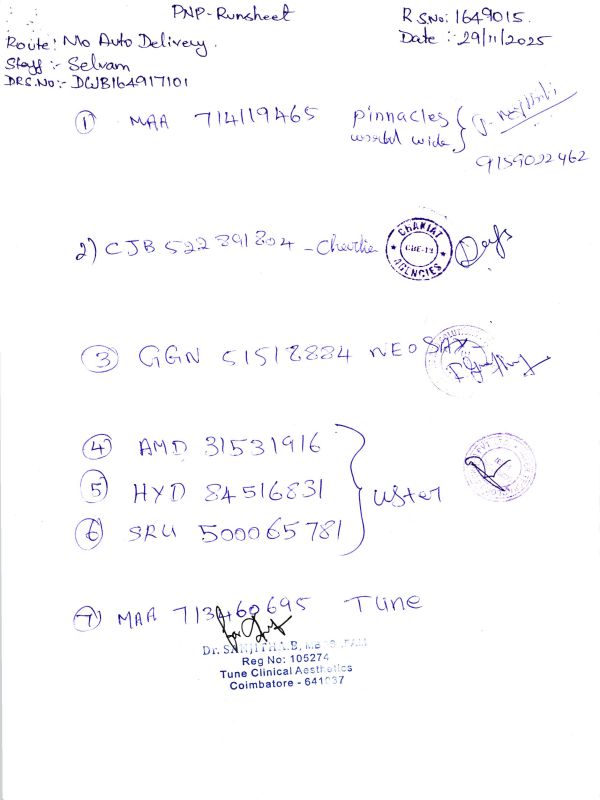 PNP-Runsheet
R S.No: 1649015.
Route: Mo Auto Delivery.
Date :- 29/11/2025
Staff :- Selvam
DRS.No:- DCJB164917101
① MAA 714119465 pinnacles
world wide
9159022462
2) CJB 522891804 - Chevlie
CHANIAT
CBE-13
AGENCIES
③ GGN 51518884 NEOSAX
④ AMD 31531916
⑤ HYD 84516831 Uster
⑥ SRU 500065781
⑦ MAA 713460695 Tune
Dr. SANJITHA.B,
Reg No: 105274
Tune Clinical Aesthetics
Coimbatore - 641037